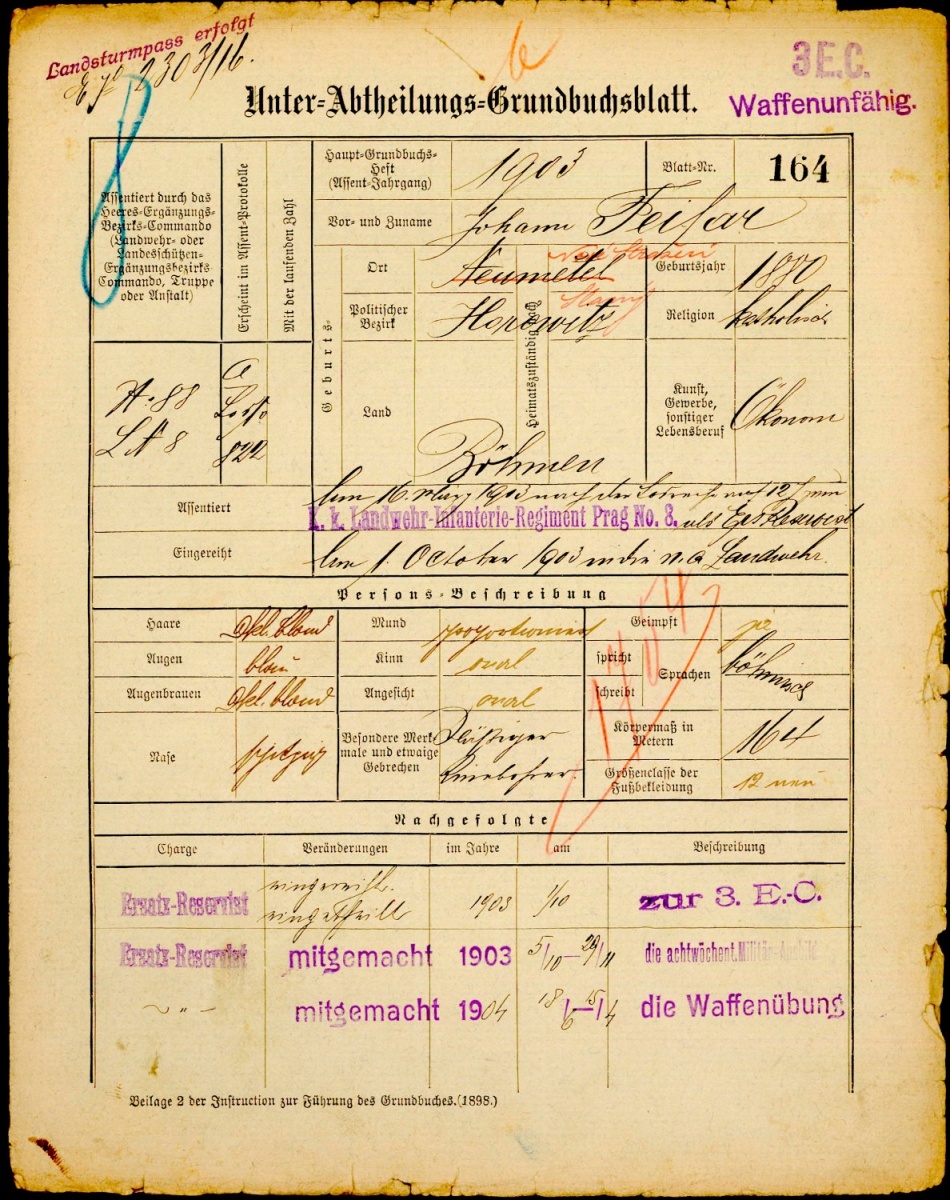 Landsturmpass erfolgt
2303/16.
3 E.C.
Waffenunfähig.
Unter-Abtheilungs-Grundbuchsblatt.
8
Assentiert durch das
Heeres-Ergänzungs-
Bezirks-Commando
(Landwehr- oder
Landesschützen-
Ergänzungsbezirks
Commando, Truppe
oder Anstalt)
Erscheint im Assent-Protokolle
Mit der laufenden Zahl
Haupt-Grundbuchs-
Heft
(Assent-Jahrgang)
1903
Blatt-Nr.
164
Vor- und Zuname
Johann
Geburts-
Ort
Neumětel
Geburtsjahr
1880
Politischer
Bezirk
Horowitz
Heimatszuständig nach
Religion
katholisch
Land
Böhmen
Kunst,
Gewerbe,
sonstiger
Lebensberuf
Ökonom
822
Assentiert
am 16. März 1903 nach der
auf 12
K. k. Landwehr-Infanterie-Regiment Prag No. 8. als
Eingereiht
am 1. October 1903 in die Landwehr.
Persons-Beschreibung
Haare
blond
Mund
proportioniert
Geimpft
ja
Augen
blau
Kinn
oval
spricht
schreibt
Sprachen
böhmisch
Augenbrauen
blond
Angesicht
oval
Nase
spitzig
Besondere Merk-
male und etwaige
Gebrechen
Körpermaß in
Metern
164
Größenclasse der
Fußbekleidung
12 neu
Nachgefolgte
Charge
Veränderungen
im Jahre
am
Beschreibung
Ersatz-Reservist
eingereiht
1903
1/10
zur 3. E.-C.
Ersatz-Reservist
mitgemacht
1903
5/10 – 29/11
die achtwöchent. Militär-Ausbild
– " –
mitgemacht
1904
die Waffenübung
Beilage 2 der Instruction zur Führung des Grundbuches. (1898.)